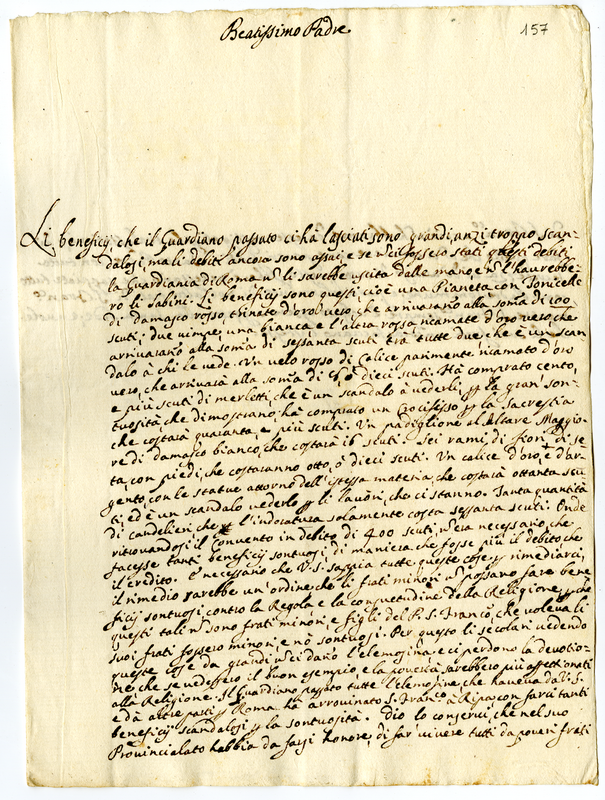 Beatissimo Padre
157
Li beneficij, che il Guardiano passato ci hà lasciati sono grandi, anzi troppo scan-
dalosi, mà li debiti ancora sono assai, e se nõ ci fossero stati questi debiti
la Guardiania di Roma nõ li sarebbe uscita dalle mano, e nõ l'haurebbe-
ro li Sabini. Li beneficij sono questi, cioè una Pianeta con Tonicelle
di damasco rosso trinate d'oro vero, che arrivarano alla soma di 100
scuti, due uimpe, una bianca, e l'altra rossa ricamate d'oro vero che
arrivarano alla soma di sessanta scuti trà tutte due che è un scan
dalo à chi le vede. Un velo rosso di Calice parimente ricamato d'oro
vero, che arrivarà alla soma di ò dieci scuti. Hà comprato cento,
e più scuti di merletti, che è un scandalo à vederli, ꝑ la gran son-
tuosità che dimostrano, hà comprato un Crocifisso ꝑ la Sacrestia
che costarà quaranta, e più scuti. Un padiglione al Altare Maggio-
re di damasco bianco, che costarà 16 scuti. Sei rami di fiori di se
ta con piedi, che costaranno otto, ò dieci scuti. Un calice d'oro, e d'ar-
gento, con le statue attorno dell'istessa materia, che costarà ottanta scu
ti, ed è un scandalo vederlo ꝑ li lauori, che ci stanno. Tanta quantità
di candelieri che l'indoratura solamente costa sessanta scuti. Onde
ritrovandosi il Convento in debito di 400 scuti nõ era necessario, che
facesse tanti beneficij sontuosi di maniera, che fosse più il debito che
il credito. È necessario che V. S. sappia tutte queste cose, ꝑ rimediarci,
il rimedio sarebbe un'ordine, che li frati minori nõ possano fare bene
ficij sontuosi contro la Regola, e la consuetudine della Religione, ꝑche
questi tali nõ sono frati minori, e figli del P. S. Franco, che voleva li
suoi frati fossero minori, e nõ sontuosi. Per questo li secolari vedendo
queste cose da grandi nõ ci danno l'elemosina, e ci perdono la devotio-
ne, che se vedessero il buon esempio, e la povertà sarebbero più affettionati
alla Religione. Il Guardiano passato tutte l'elemosine, che haueva da V. S.
e da altre parti ꝑ Roma hà arrovinato S. Franco. à Ripa con farci tanti
beneficij scandalosi ꝑ la sontuosità. Dio lo conservi, che nel suo
Provincialato habbia da farsi honore, di far vivere tutti da poveri frati